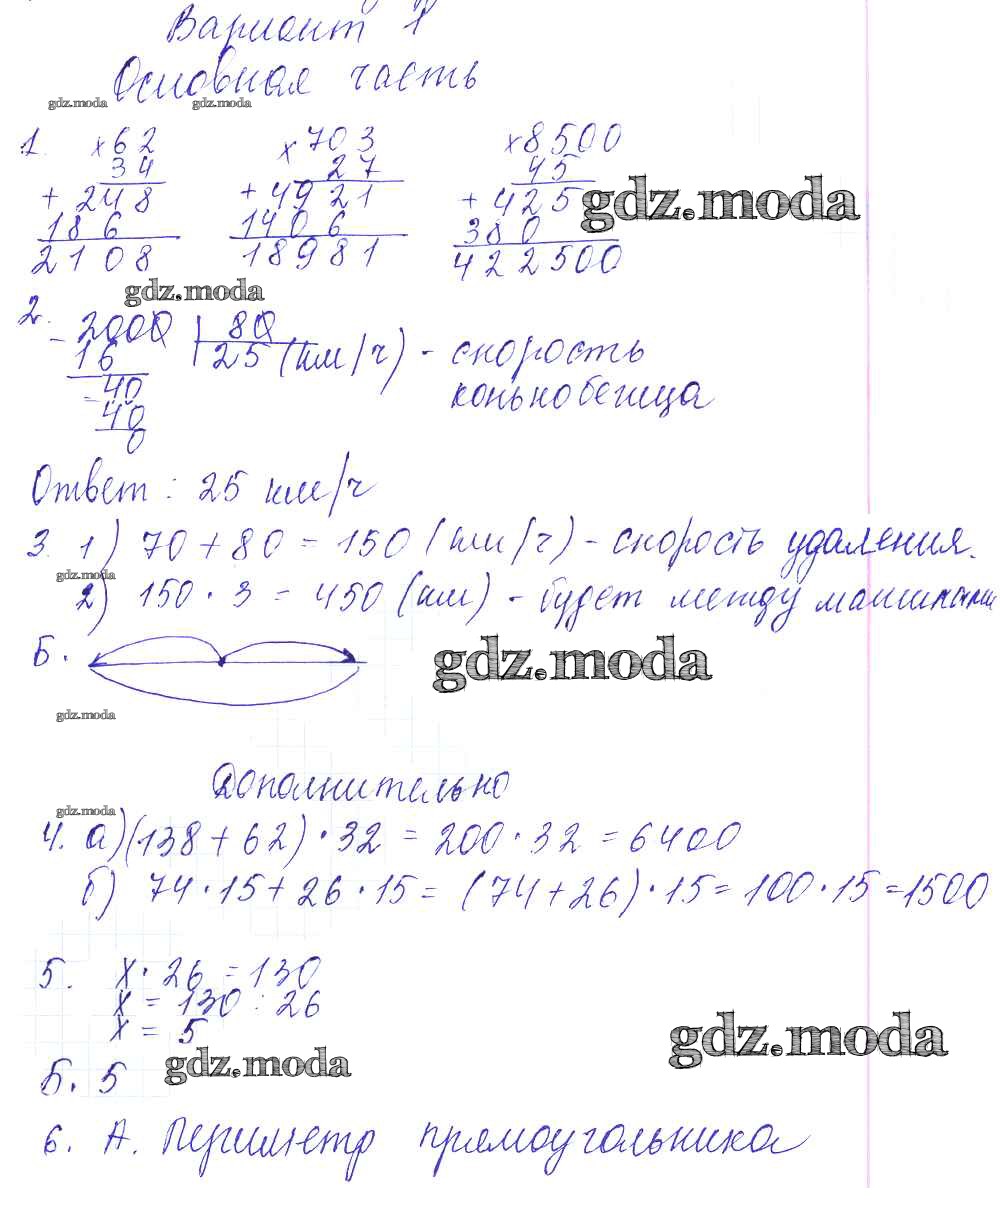 Вариант 1
Основная часть
gdz.moda gdz.moda
1. × 62 × 703 × 8500
34 27 45
+ 248 + 4921 + 425
186 1406 380
2108 18981 422500
gdz.moda
gdz.moda
2. - 2000 | 80
16 25 (км/ч) - скорость
= 40 конькобежца
40
0
Ответ: 25 км/ч
3. 1) 70 + 80 = 150 (км/ч) - скорость удаления.
gdz.moda
2) 150 · 3 = 450 (км) - будет между машинами
Б.
gdz.moda
gdz.moda
Дополнительно
gdz.moda
4. а) (138 + 62) · 32 = 200 · 32 = 6400
б) 74 · 15 + 26 · 15 = (74 + 26) · 15 = 100 · 15 = 1500
5. x · 26 = 130
x = 130 : 26
x = 5
gdz.moda
gdz.moda
Б. 5
6. А. Периметр прямоугольника